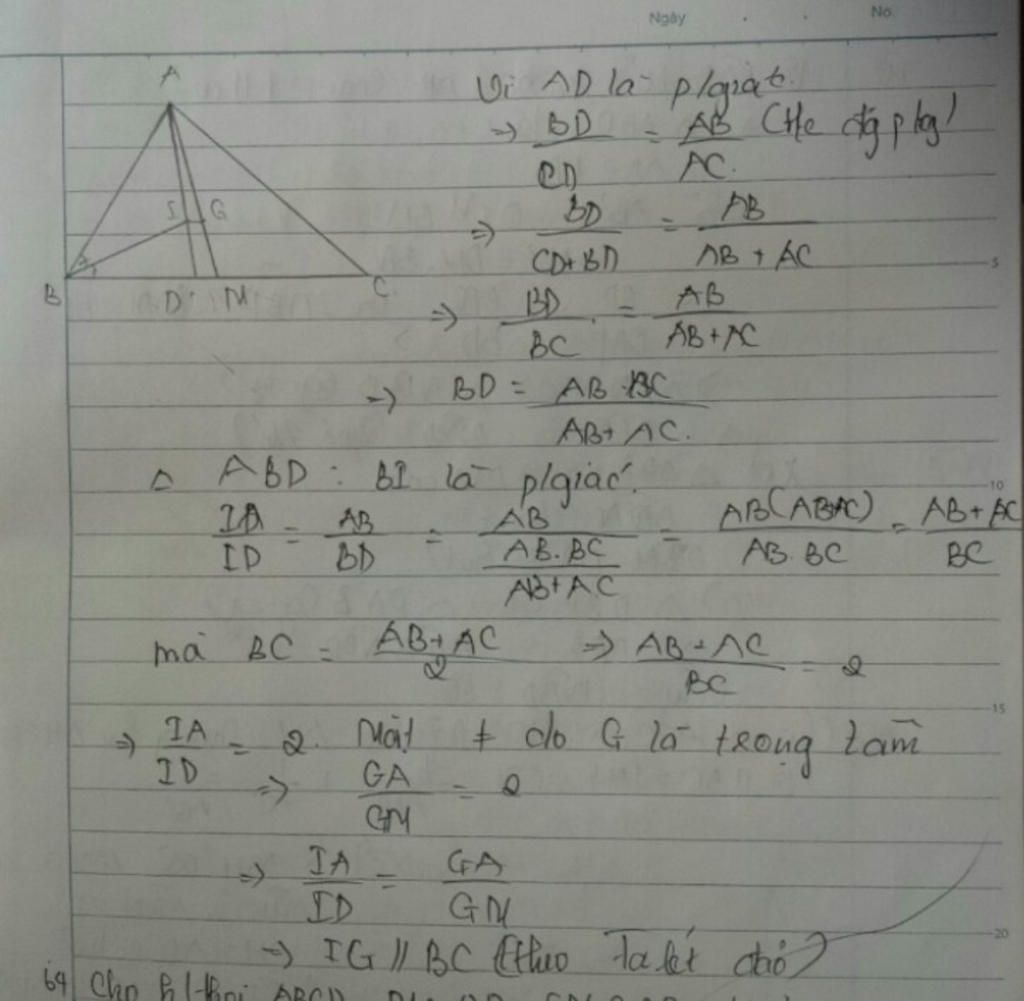 Ngày . . No.
A
I G
B D M C
Vì AD là p/giác.
=> BD/CD = AB/AC (
=> BD/CD+BD = AB/AB + AC
=> BD/BC = AB/AB+AC
=> BD = AB.BC/AB+AC.
△ ABD : BI là p/giác.
IA/ID = AB/BD = AB/(AB.BC/AB+AC) = AB(AB+AC)/AB.BC = AB+AC/BC
mà BC = AB+AC/2 => AB+AC/BC = 2
=> IA/ID = 2. Mặt ≠ do G là trọng tâm
=> GA/GM = 2
=> IA/ID = GA/GM
=> IG // BC (theo Ta lét đảo)
5
10
15
20
64 Cho h/thoi ABCD